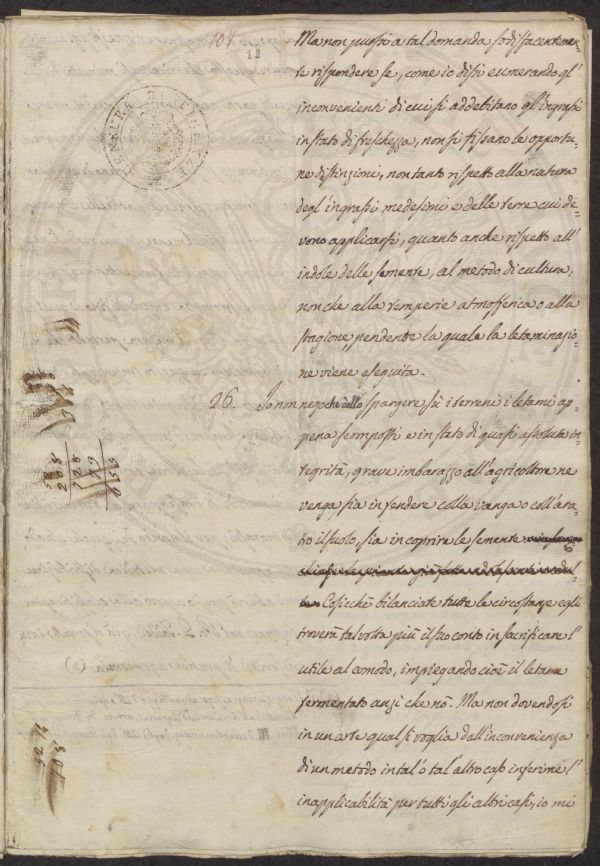 104
12
Ma non puossi a tal domanda sodisfacenteme-
te rispondere se, come io dissi enumerando gl'
inconvenienti di cui si addebitano gl'ingrassi
in stato di freschezza, non si fissano le opportu-
ne distinzioni, non tanto rispetto alla natura
degl'ingrassi medesimi e delle terre cui de-
vono applicarsi, quanto anche rispetto all'
indole delle semente, al metodo di cultura,
non che alla temperie atmosferica o alla
stagione pendente la quale la letaminazio-
ne viene eseguita.
26. Io non nego che dallo spargere sù i terreni i letami ap-
pena scomposti e in stato di quasi assoluta in-
tegrità, grave imbarazzo all'agricoltore ne
venga sia in fendere colla vanga o coll'ara-
tro il suolo, sia in coprire le semente
Cosicchè bilanciate tutte le circostanze egli
troverà talvolta più il suo conto in sacrificare l'
utile al comodo, impiegando cioè il letame
fermentato anzi che nò. Ma non dovendosi
in un arte qual si voglia dall'inconvenienza
di un metodo in tal' o tal'altro caso inferirne l'
inapplicabilità per tutti gli altri casi, io mi